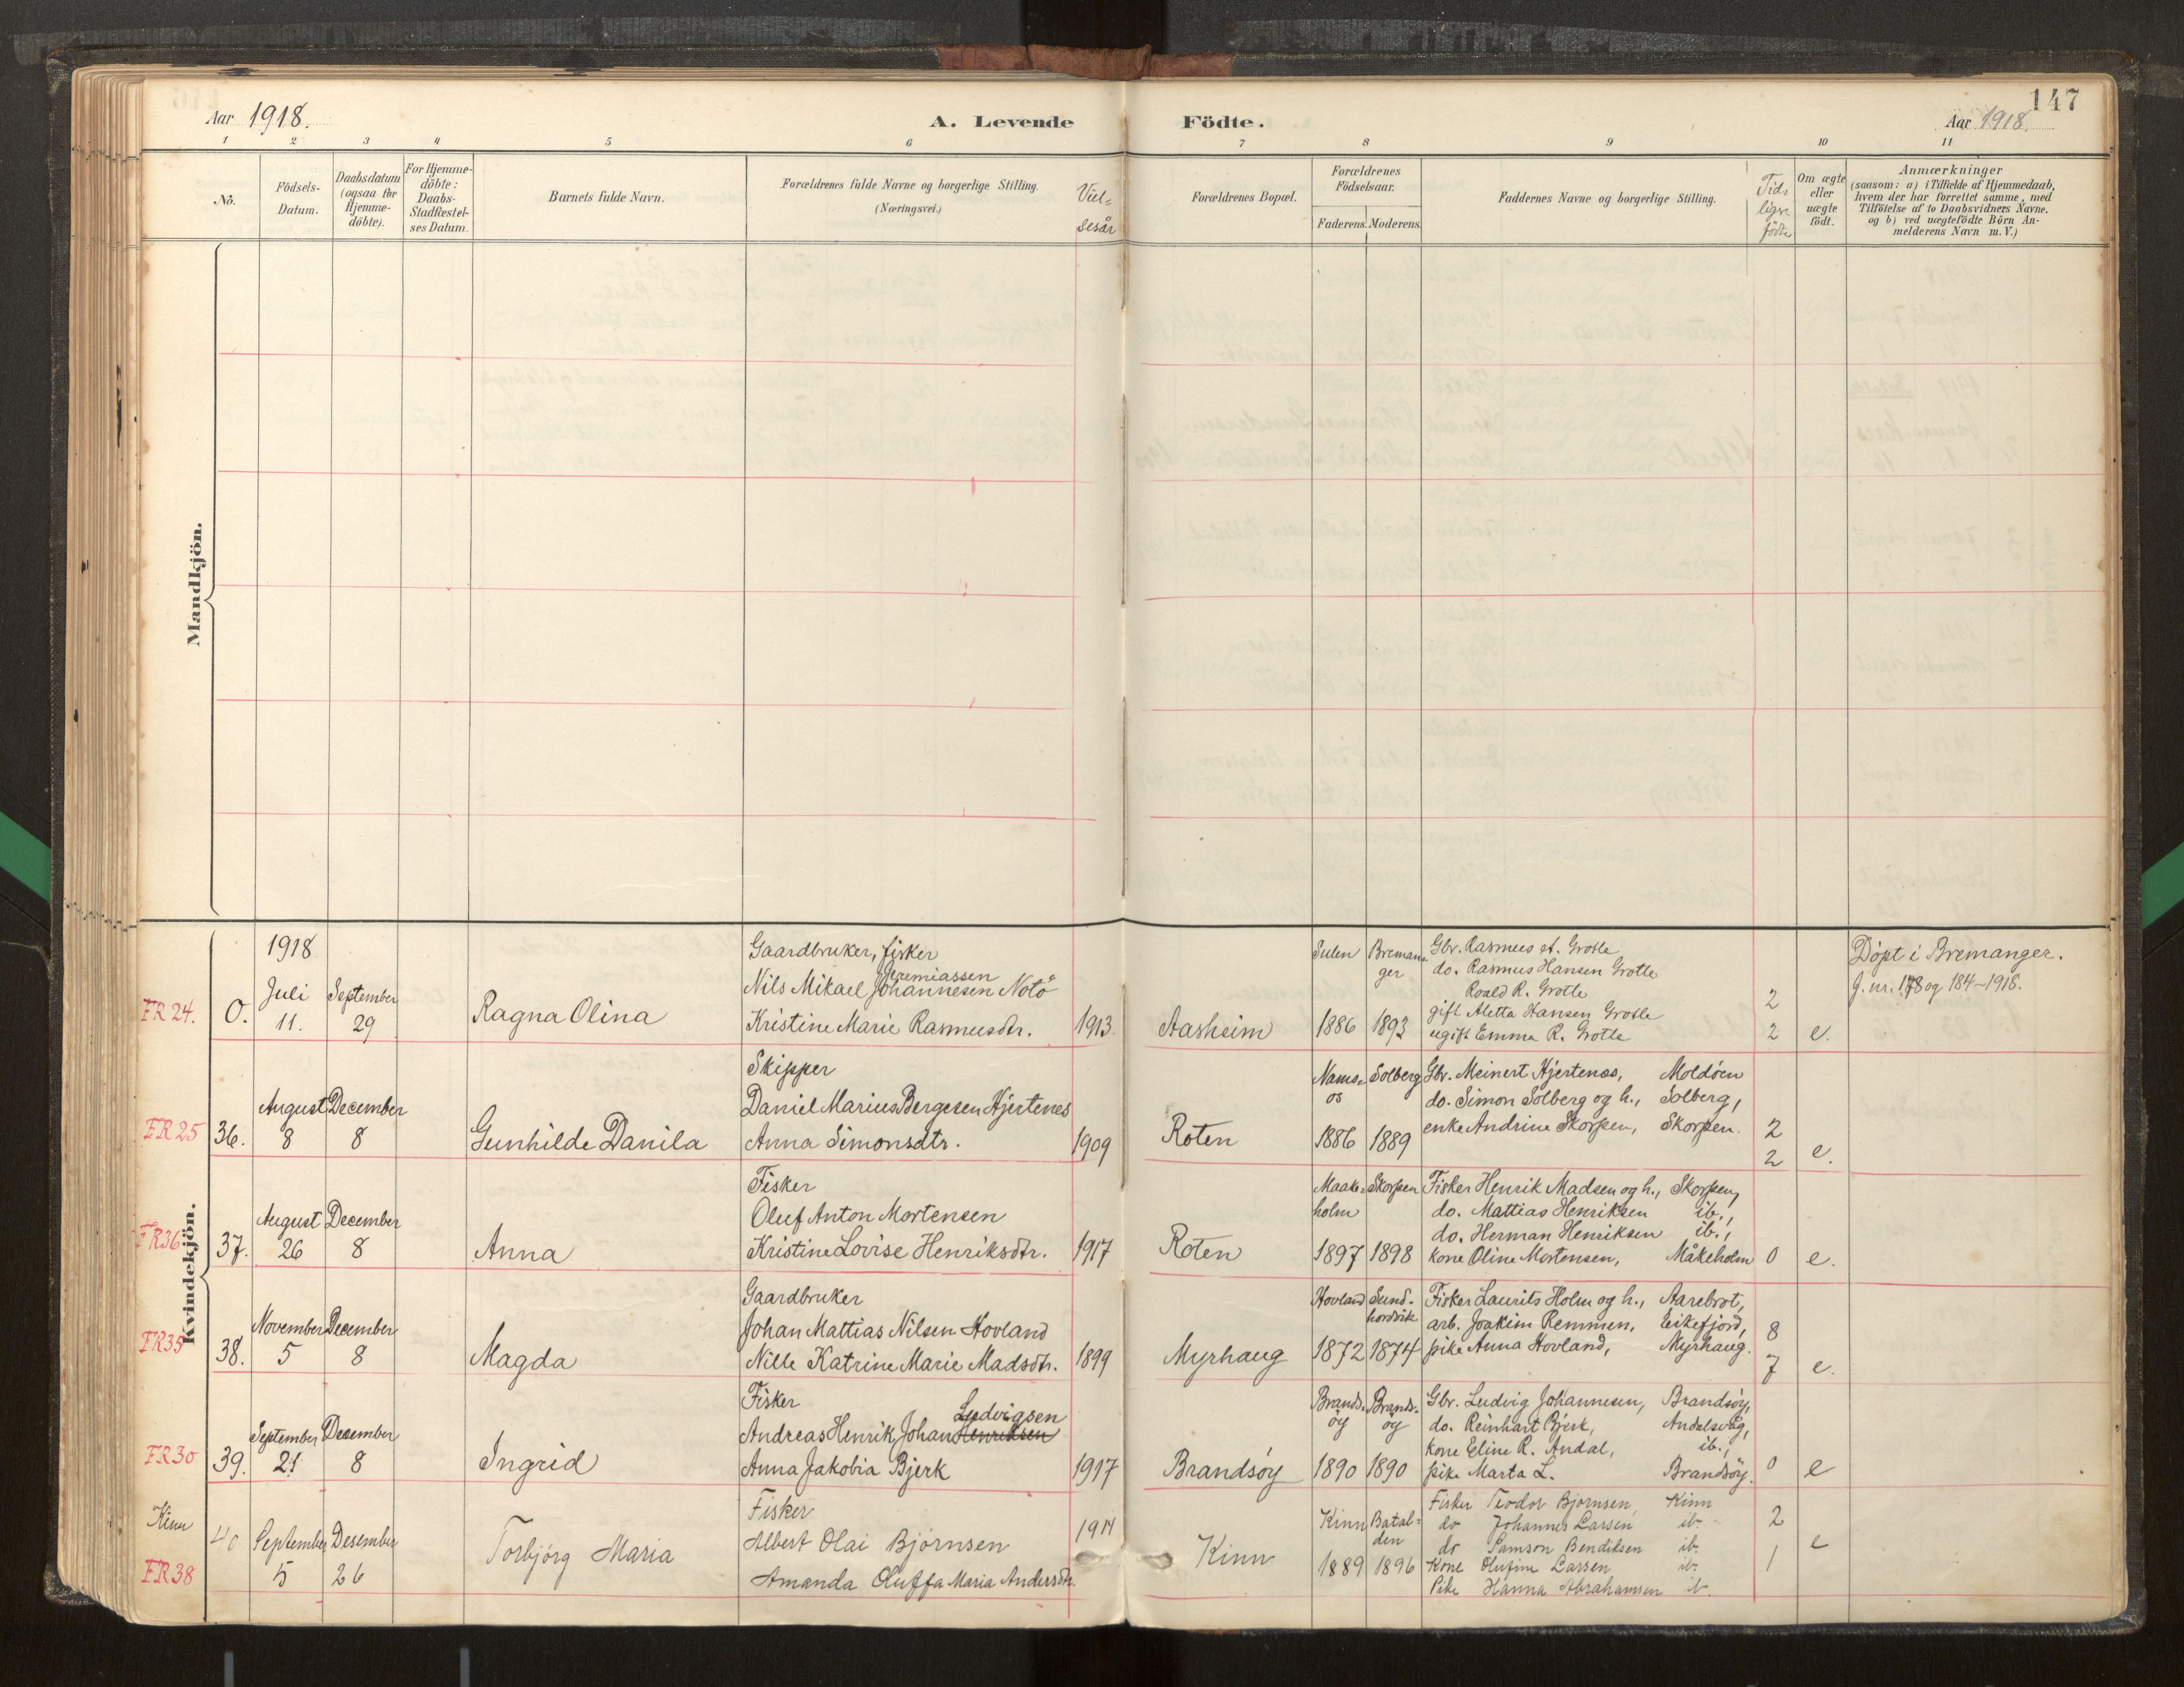 147
Aar 1918.
A. Levende Födte.
Aar 1918.
1 2 3 4 5 6 7 8 9 10 11
Nö.
Födsels-Datum.
Daabsdatum (ogsaa for Hjemme-döbte).
For Hjemme-döbte: Daabs-Stadfæstel-ses Datum.
Barnets fulde Navn.
Forældrenes fulde Navne og borgerlige Stilling.
(Næringsvei.)
Viel=
sesår
Forældrenes Bopæl.
Forældrenes Födselsaar.
Faderens. Moderens.
Faddernes Navne og borgerlige Stilling.
Tid.
ligere
fødte
Om ægte eller uægte födt.
Anmærkninger
(saasom: a) i Tilfælde af Hjemmedaab,
hvem der har forrettet samme, med
Tilföielse af to Daabsvidners Navne.
og b) ved uægtefödte Börn An-
melderens Navn m. V.)
Mandkjön.
Kvindekjön.
1918
Gaardbruker, fisker
Sulen Bremanger
Gbr. Rasmus et. Grotle
Döpt i Bremanger.
Jeremiassen
do. Rasmus Hansen Grotle
J. nr. 178 og 184-1918.
Juli September
Nils Mikael Johannesen Notö
Roald R. Grotle
2
FR 24. 0. 11. 29 Ragna Olina Kristine Marie Rasmusdtr. 1913. Aasheim 1886 1893
gift Aletta Hansen Grotle
ugift Emma R. Grotle 2 e.
Skipper
Namsos Solberg
Gbr. Meinert Hjertenæs, Moldöen
August December
Daniel Marius Bergesen Hjertenes
do. Simon Solberg og h., Solberg,
FR 25 36. 8 8 Gunhilde Danila Anna Simonsdtr. 1909 Roten 1886 1889
enke Andrine Skorpen, Skorpen. 2
2 e.
Fisker
Maakeholm Skorpen
Fisker Henrik Madsen og h., Skorpen,
August December
Oluf Anton Mortensen
do. Mattias Henriksen ib.,
do. Herman Henriksen ib.,
FR36 37. 26 8 Anna Kristine Lovise Henriksdtr. 1917 Roten 1897 1898 kone Oline Mortensen, Måkeholm 0 e.
Gaardbruker
Hovland Sund-hordvik
Fisker Laurits Holm og h., Aarebrot,
November December
Johan Mattias Nilsen Hovland
arb. Joakim Remmen, Eikefjord, 8
FR35 38. 5 8 Magda Nille Katrine Marie Madsdtr. 1899 Myrhaug 1872 1874 pike Anna Hovland, Myrhaug.
7 e.
Fisker
Brandsöy Brandsöy
Gbr. Ludvig Johannesen, Brandsöy,
Ludvigsen
September December
Andreas Henrik Johan Henriksen
do. Reinhart Bjerk, Andalsvåg,
kone Eline R. Andal, ib.,
FR30 39. 21 8 Ingrid Anna Jakobia Bjerk 1917 Brandsöy 1890 1890 pike Marta L. Brandsöy. 0 e
Kinn
Fisker
Kinn Batalden
Fisker Teodor Bjørnsen, Kinn
40 September Desember
Torbjørg Maria
Albert Olai Bjørnsen 1914
do Johannes Larsen ib. 2
do Samson Bendiksen ib. e
FR38 5 26
Amanda Oluffa Maria Andersdtr.
Kinn 1889 1896
Kone Olufine Larsen ib. 1
Pike Hanna Abrahamsen ib.